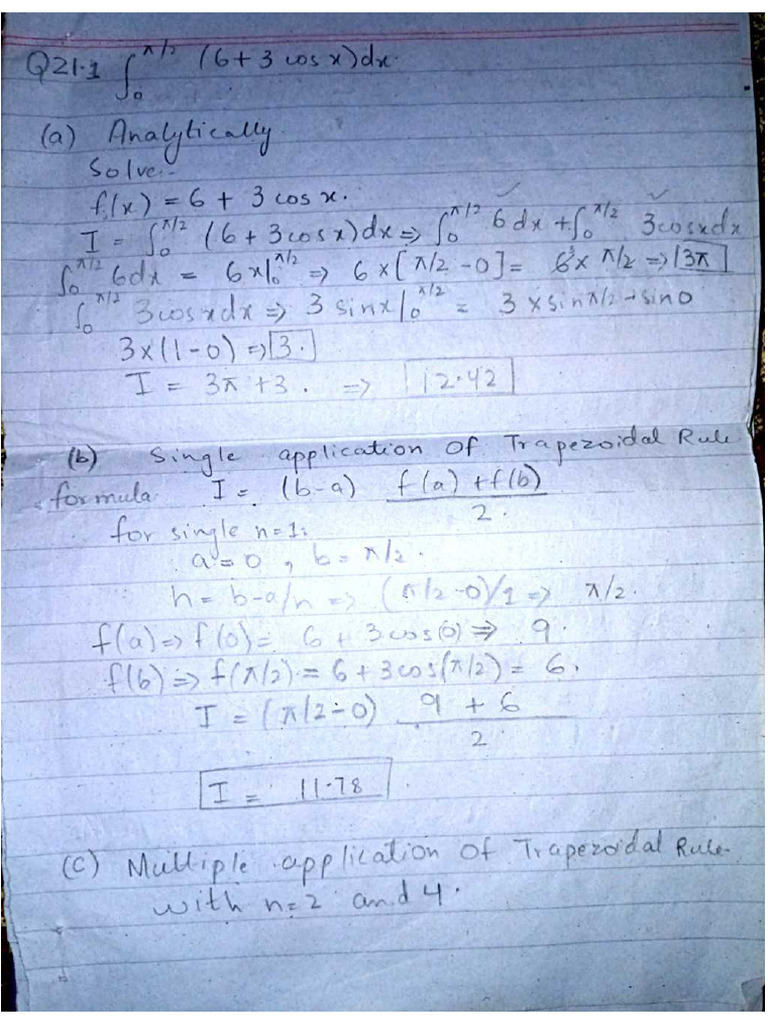 Q21.1 ∫₀^π/2 (6+3 cos x)dx.
(a) Analytically
Solve:-
f(x) = 6 + 3 cos x.
I = ∫₀^π/2 (6+3cosx)dx ⇒ ∫₀^π/2 6dx + ∫₀^π/2 3cosxdx
∫₀^π/2 6dx = 6x|₀^π/2 ⇒ 6×[π/2 -0] = 6³× π/2 ⇒ 3π
∫₀^π/2 3cosxdx ⇒ 3 sinx|₀^π/2 = 3 × sinπ/2 - sin0
3×(1-0) ⇒ 3.
I = 3π +3. ⇒ 12.42
(b) Single application of Trapezoidal Rule
formula I = (b-a) f(a) +f(b)
2.
for single n=1:
a=0, b=π/2.
h= b-a/n => (π/2-0)/1 => π/2.
f(a) => f(0) = 6 + 3cos(0) ⇒ 9.
f(b) => f(π/2) = 6+3cos(π/2) = 6.
I = (π/2-0) 9 + 6
2
I = 11.78
(C) Multiple application of Trapezoidal Rule
with n=2 and 4.